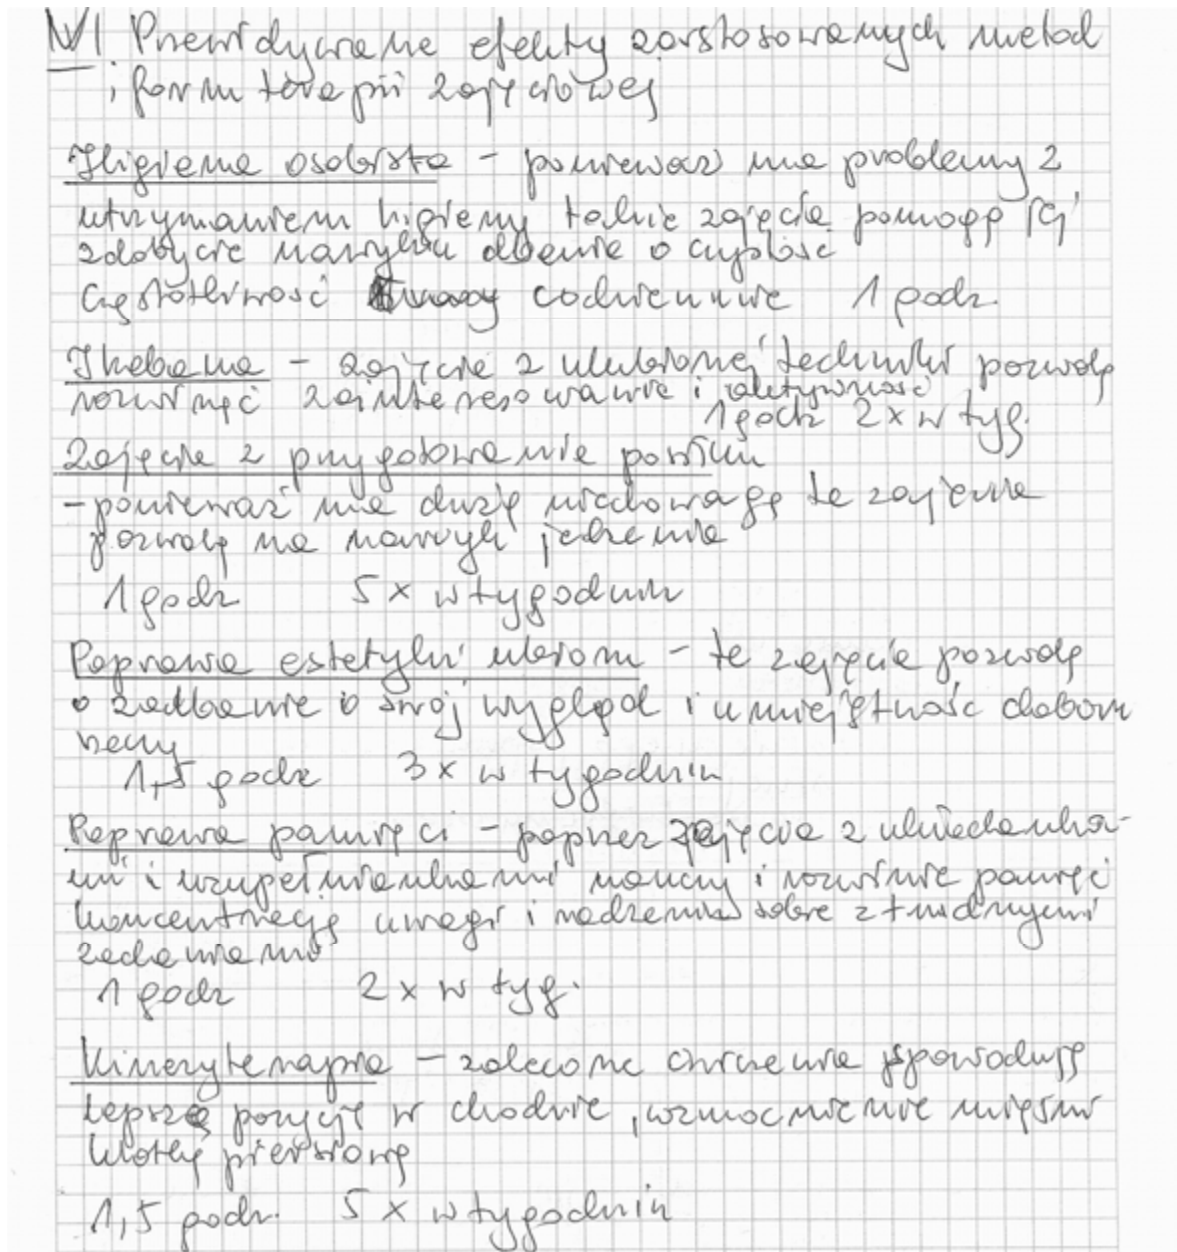 IV/ Przewidywane efekty zarstosowanych metod
i form terapii zajęciowej
Higiena osobista - ponieważ ma problemy z
utrzymaniem higieny takie zajęcia pomogą jej
zdobycie nawyku dbanie o czystość
Częstotliwość codziennie 1 godz.
Ikebana - zajęcie z ulubionej techniki pozwolą
rozwinąć zainteresowanie i
1 godz 2 x w tyg.
Zajęcia z przygotowanie posiłku
- ponieważ ma dużą niedowagę te zajęcia
pozwolą na nawyk jedzenia
1 godz 5 x w tygodniu
Poprawa estetyki ubioru - te zajęcia pozwolą
o zadbanie o swój wygląd i umiejętność doboru
rzeczy
1,5 godz 3 x w tygodniu
Poprawa pamięci - poprzez zajęcia z układanka-
mi i uzupełniankami nauczy i rozwinie pamięć
koncentrację uwagi i radzenia sobie z trudnymi
zadaniami
1 godz 2 x w tyg.
Kinezyterapia - zalecone ćwiczenia spowodują
lepszą pozycję w chodzie, wzmocnienie mięśni
klatkę piersiową
1,5 godz. 5 x w tygodniu